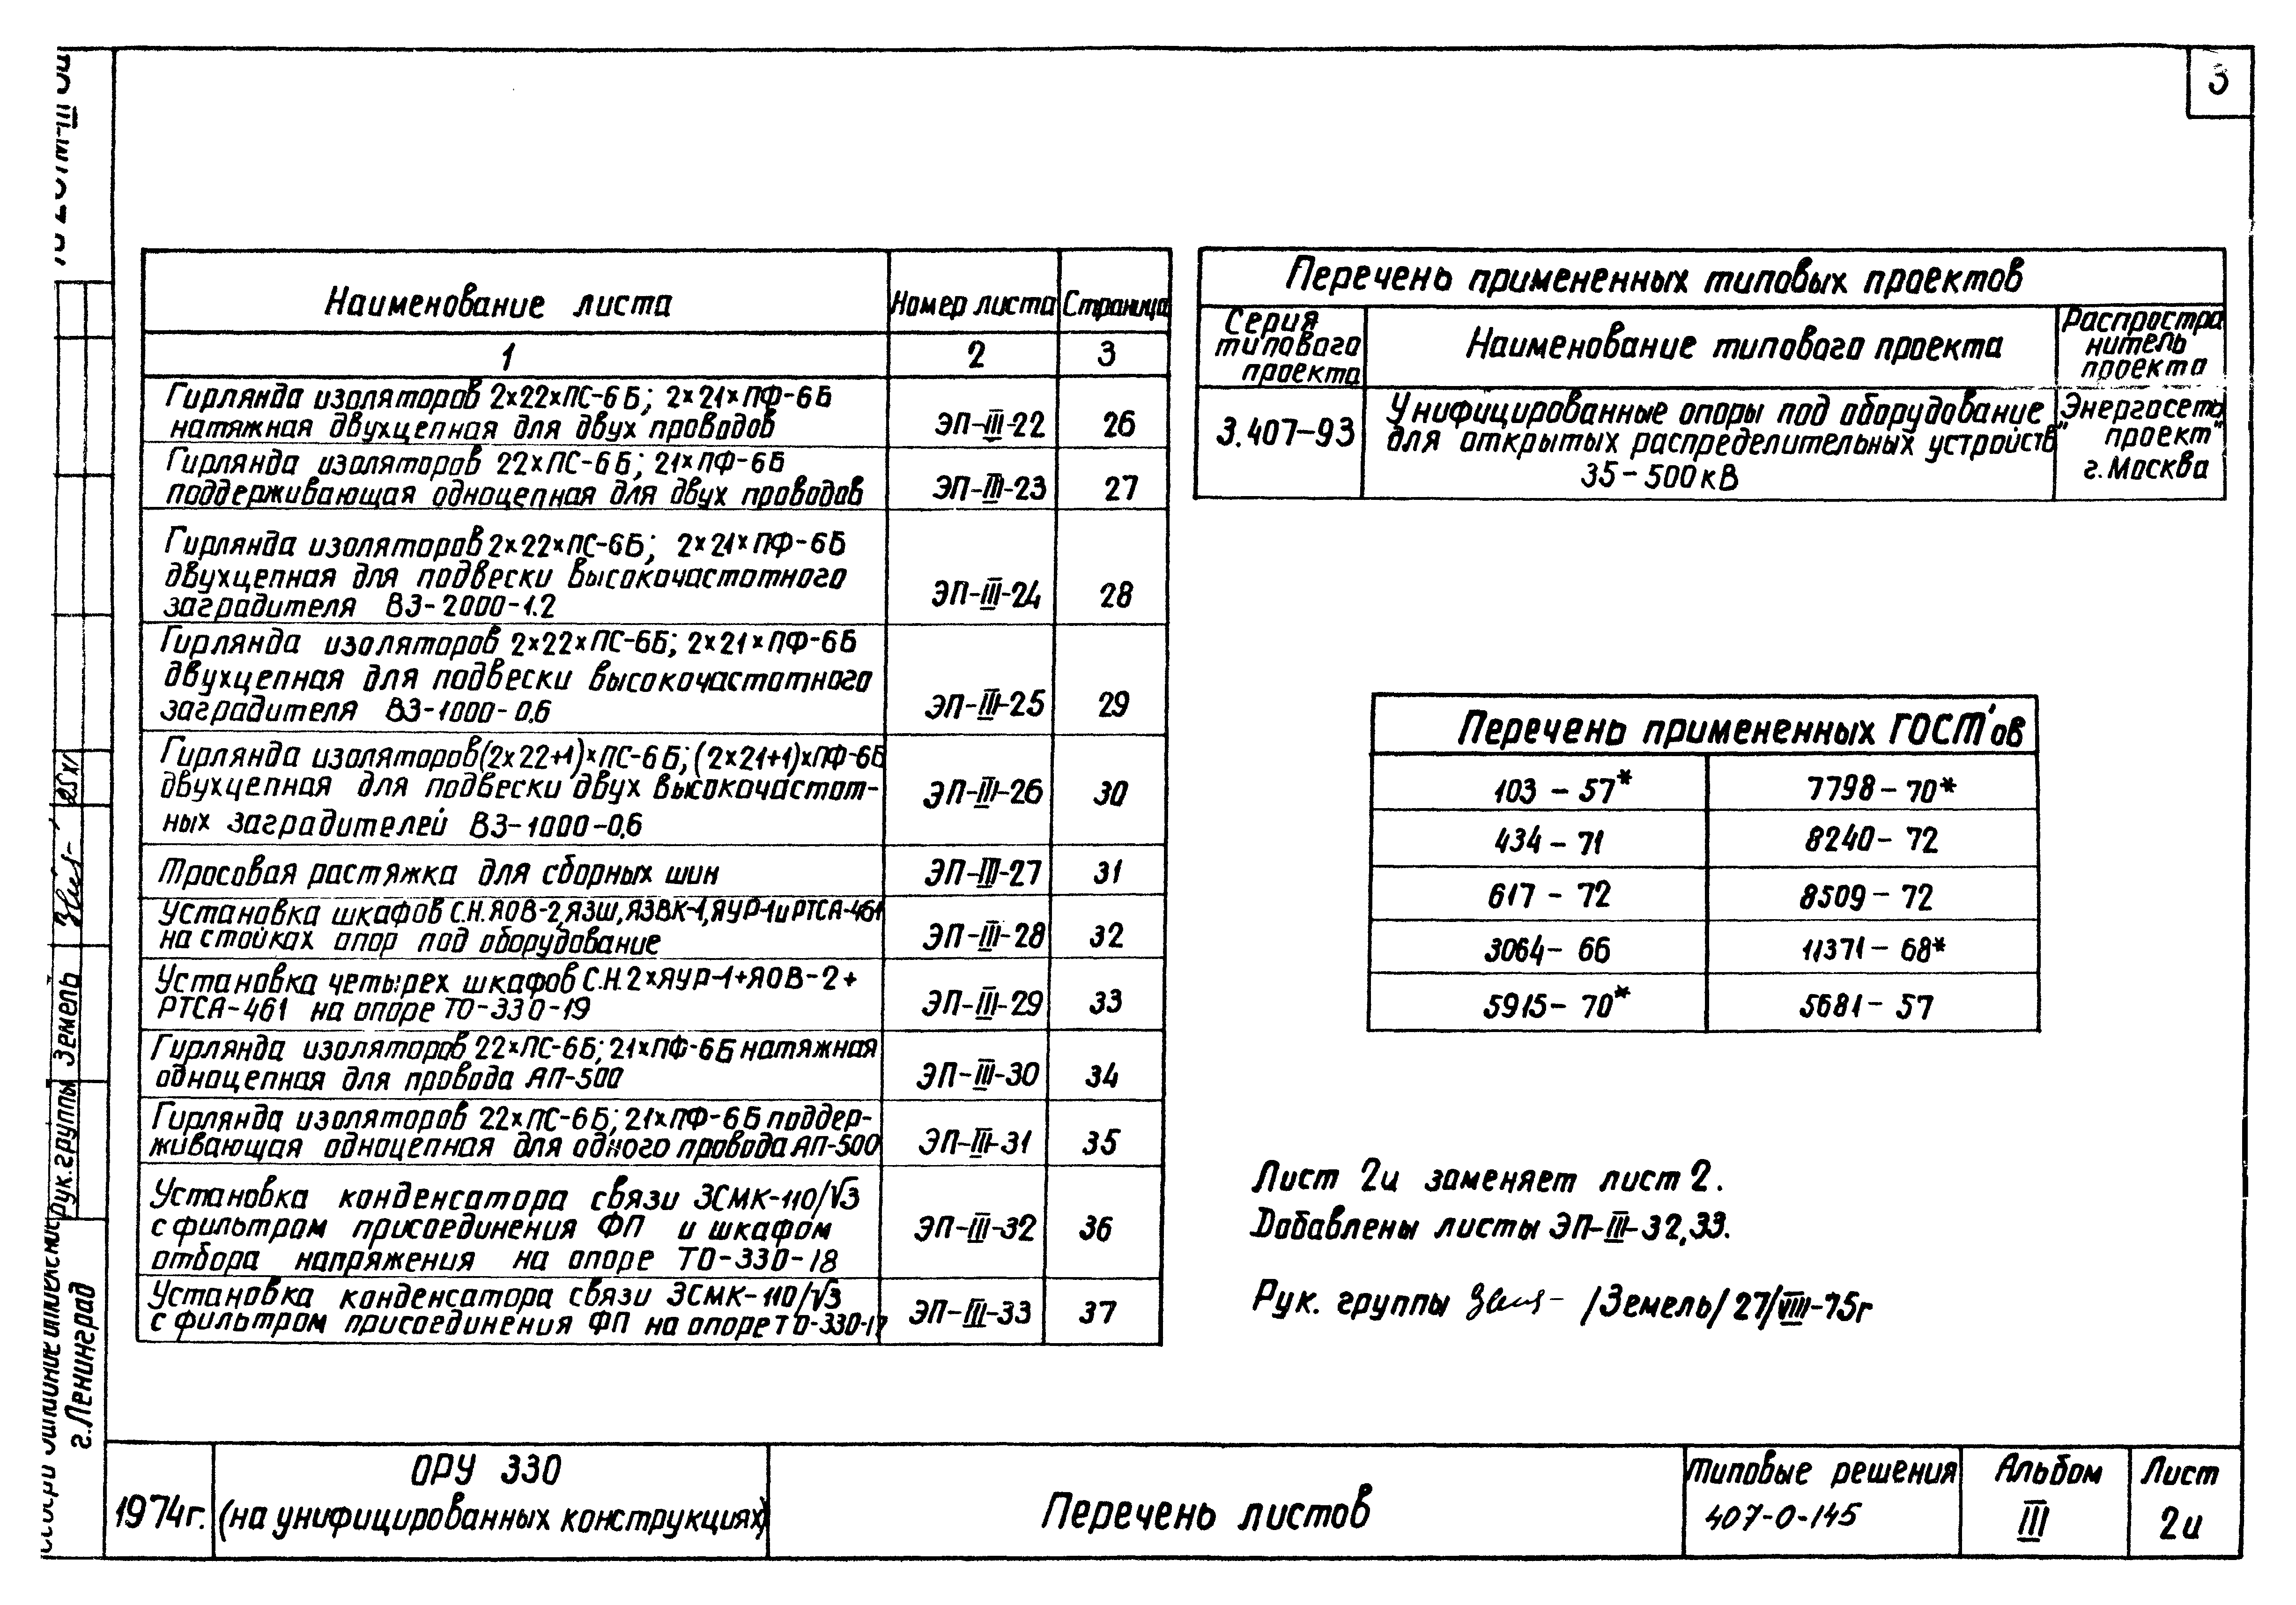 3
Наименование листа
Номер листа
Страница
1
2
3
Гирлянда изоляторов 2х22хПС-6Б; 2х21хПФ-6Б
натяжная двухцепная для двух проводов
ЭП-III-22
26
Гирлянда изоляторов 22хПС-6Б; 21хПФ-6Б
поддерживающая одноцепная для двух проводов
ЭП-III-23
27
Гирлянда изоляторов 2х22хПС-6Б; 2х21хПФ-6Б
двухцепная для подвески высокочастотного
заградителя ВЗ-2000-1.2
ЭП-III-24
28
Гирлянда изоляторов 2х22хПС-6Б; 2х21хПФ-6Б
двухцепная для подвески высокочастотного
заградителя ВЗ-1000-0.6
ЭП-III-25
29
Гирлянда изоляторов(2х22+1)хПС-6Б; (2х21+1)хПФ-6Б
двухцепная для подвески двух высокочастот-
ных заградителей ВЗ-1000-0,6
ЭП-III-26
30
Тросовая растяжка для сборных шин
ЭП-III-27
31
Установка шкафов С.Н. ЯОВ-2, ЯЗШ, ЯЗВК-1, ЯУР-1 и РТСА-461
на стойках опор под оборудование
ЭП-III-28
32
Установка четырех шкафов С.Н. 2хЯУР-1+ЯОВ-2+
РТСА-461 на опоре ТО-330-19
ЭП-III-29
33
Гирлянда изоляторов 22хПС-6Б; 21хПФ-6Б натяжная
одноцепная для провода АП-500
ЭП-III-30
34
Гирлянда изоляторов 22хПС-6Б; 21хПФ-6Б поддер-
живающая одноцепная для одного провода АП-500
ЭП-III-31
35
Установка конденсатора связи 3СМК-110/√3
с фильтром присоединения ФП и шкафом
отбора напряжения на опоре ТО-330-18
ЭП-III-32
36
Установка конденсатора связи 3СМК-110/√3
с фильтром присоединения ФП на опоре ТО-330-17
ЭП-III-33
37
Перечень примененных типовых проектов
Серия
типового
проекта
Наименование типового проекта
Распростра
нитель
проекта
3.407-93
Унифицированные опоры под оборудование
для открытых распределительных устройств
35-500кВ
"Энергосеть
проект"
г.Москва
Перечень примененных ГОСТ'ов
103 - 57*
7798 - 70*
434 - 71
8240 - 72
617 - 72
8509 - 72
3064 - 66
11371 - 68*
5915 - 70*
5681 - 57
Лист 2и заменяет лист 2.
Добавлены листы ЭП-III-32,33.
Рук. группы /Земель/ 27/VIII-75г
Рук.группы Земель
г.Ленинград
1974г.
ОРУ 330
(на унифицированных конструкциях)
Перечень листов
Типовые решения
407-0-145
Альбом
III
Лист
2и